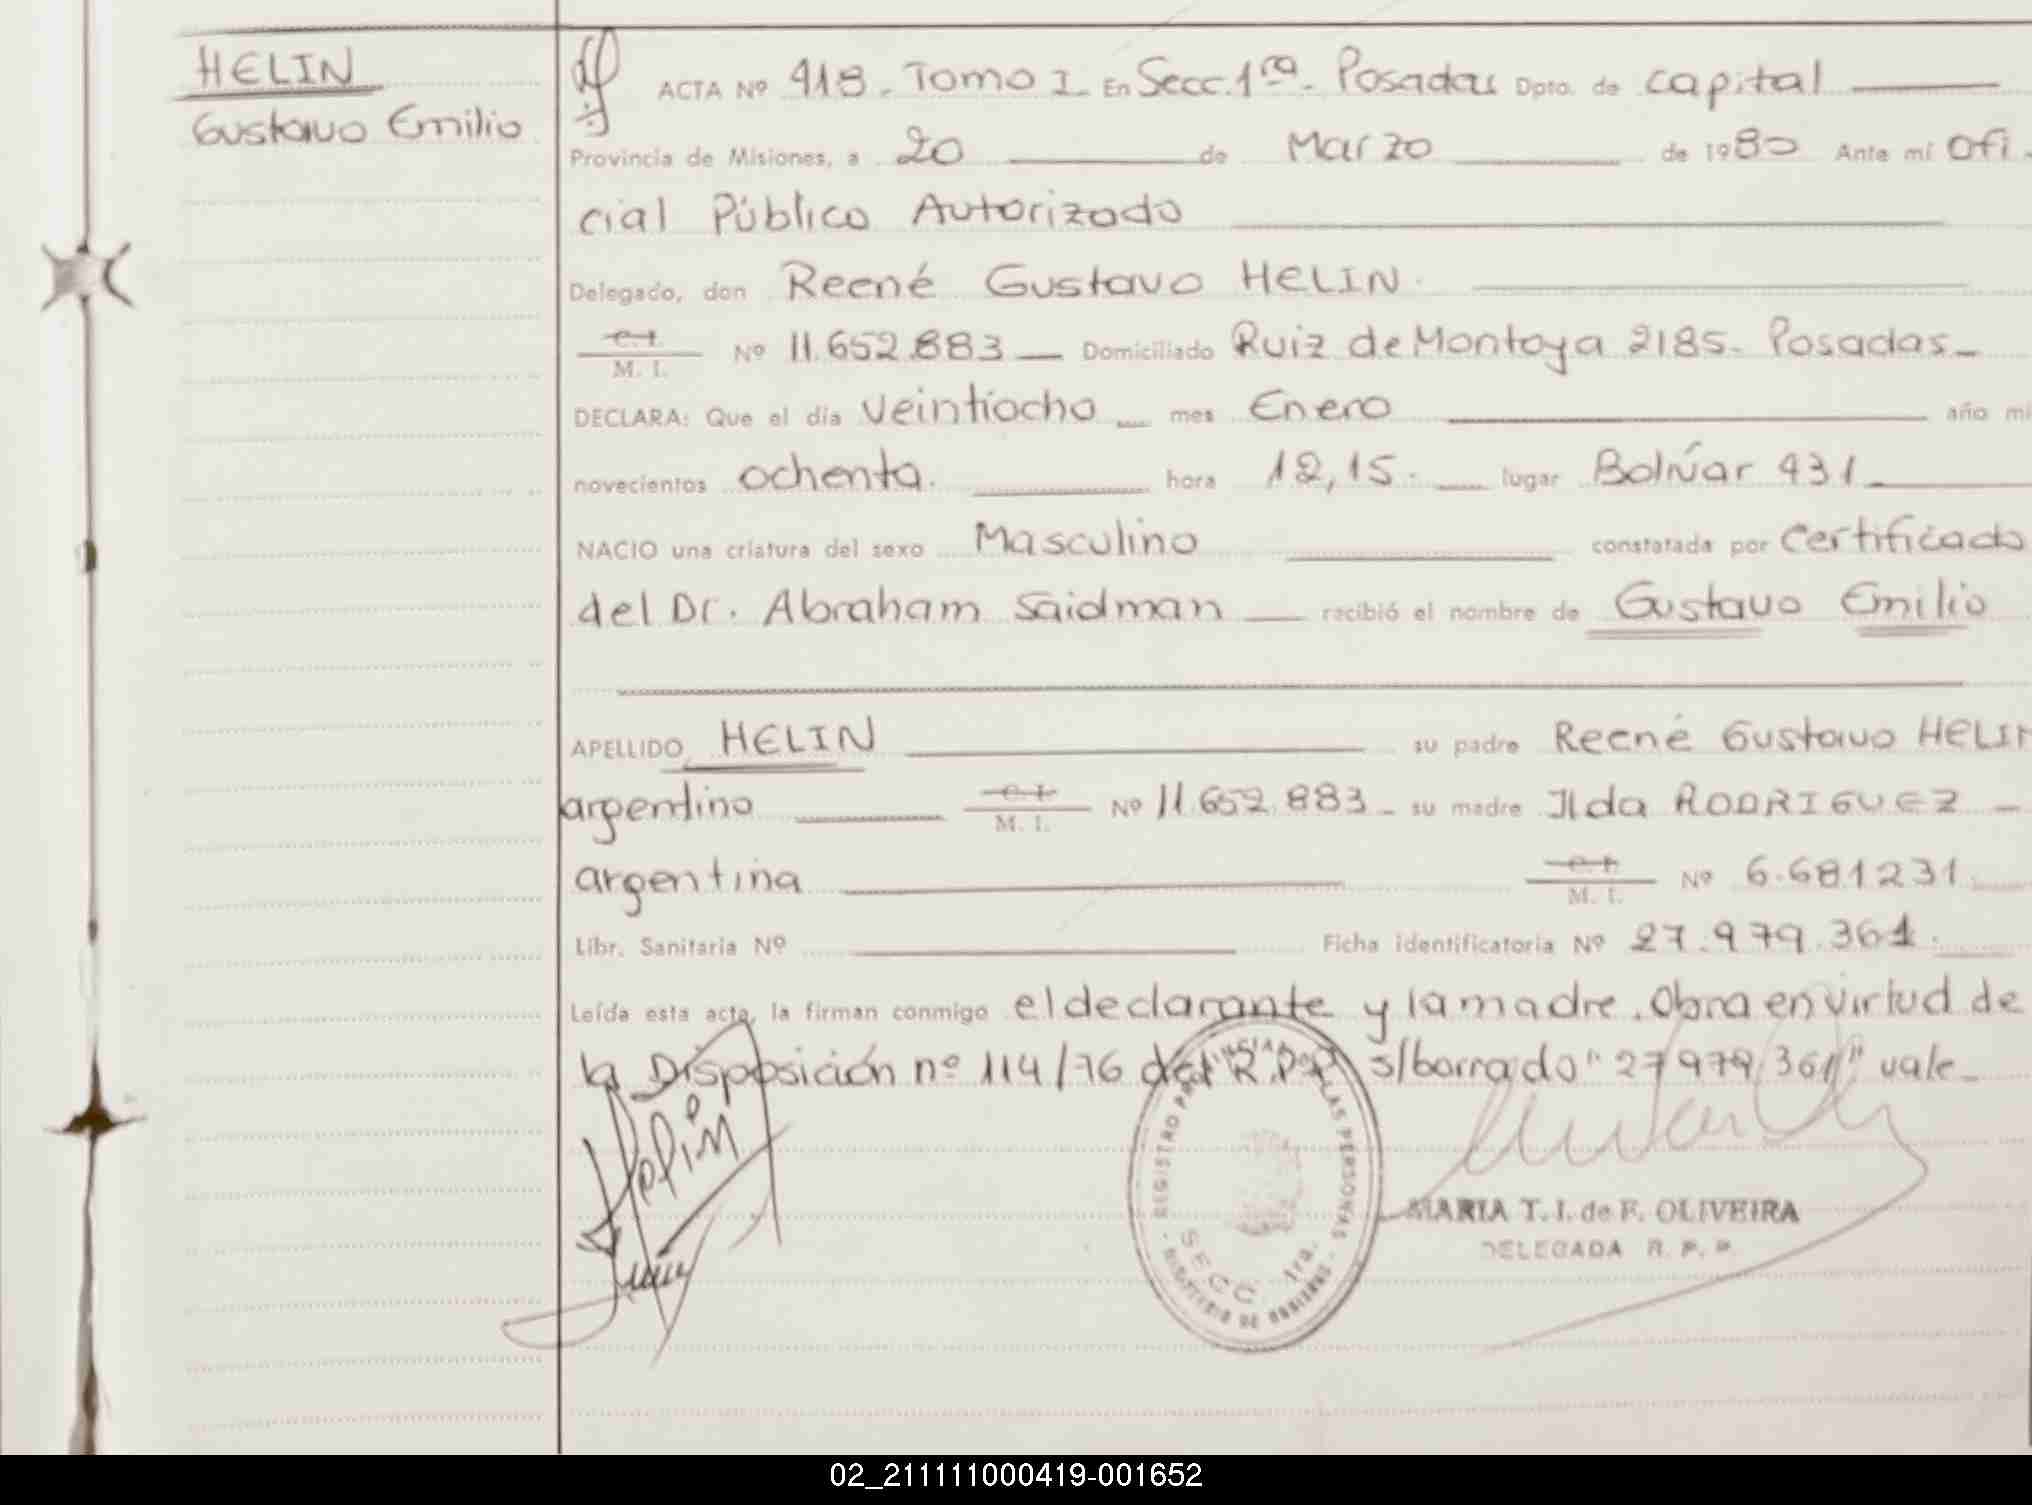 HELIN
Gustavo Emilio
ACTA Nº 418. Tomo I. En Secc. 1ra. Posadas Dpto. de capital
Provincia de Misiones, a 20 de Marzo de 1980 Ante mí Ofi-
cial Público Autorizado
Delegado, don Reené Gustavo HELIN.
C.I.
M. I. Nº 11.652.883 Domiciliado Ruiz de Montoya 2185. Posadas
DECLARA: Que el día Veintiocho mes Enero año mi
novecientos ochenta. hora 12,15. lugar Bolívar 431
NACIO una criatura del sexo Masculino constatada por Certificado
del Dr. Abraham Saidman recibió el nombre de Gustavo Emilio
APELLIDO HELIN su padre Reené Gustavo HELIN
argentino C.I. M. I. Nº 11.652.883 su madre Ilda RODRIGUEZ
argentina C.I. M. I. Nº 6.681231
Libr. Sanitaria Nº Ficha identificatoria Nº 27.979.361.
Leída esta acta, la firman conmigo el declarante y la madre. Obra en virtud de
la Disposición nº 114/76 del R.P.P. s/borrado "27979361" vale
Helin
REGISTRO PROVINCIAL DE LAS PERSONAS
SECC. 1ra.
MINISTERIO DE GOBIERNO
MARIA T. I. de F. OLIVEIRA
DELEGADA R. P. P.
02_211111000419-001652